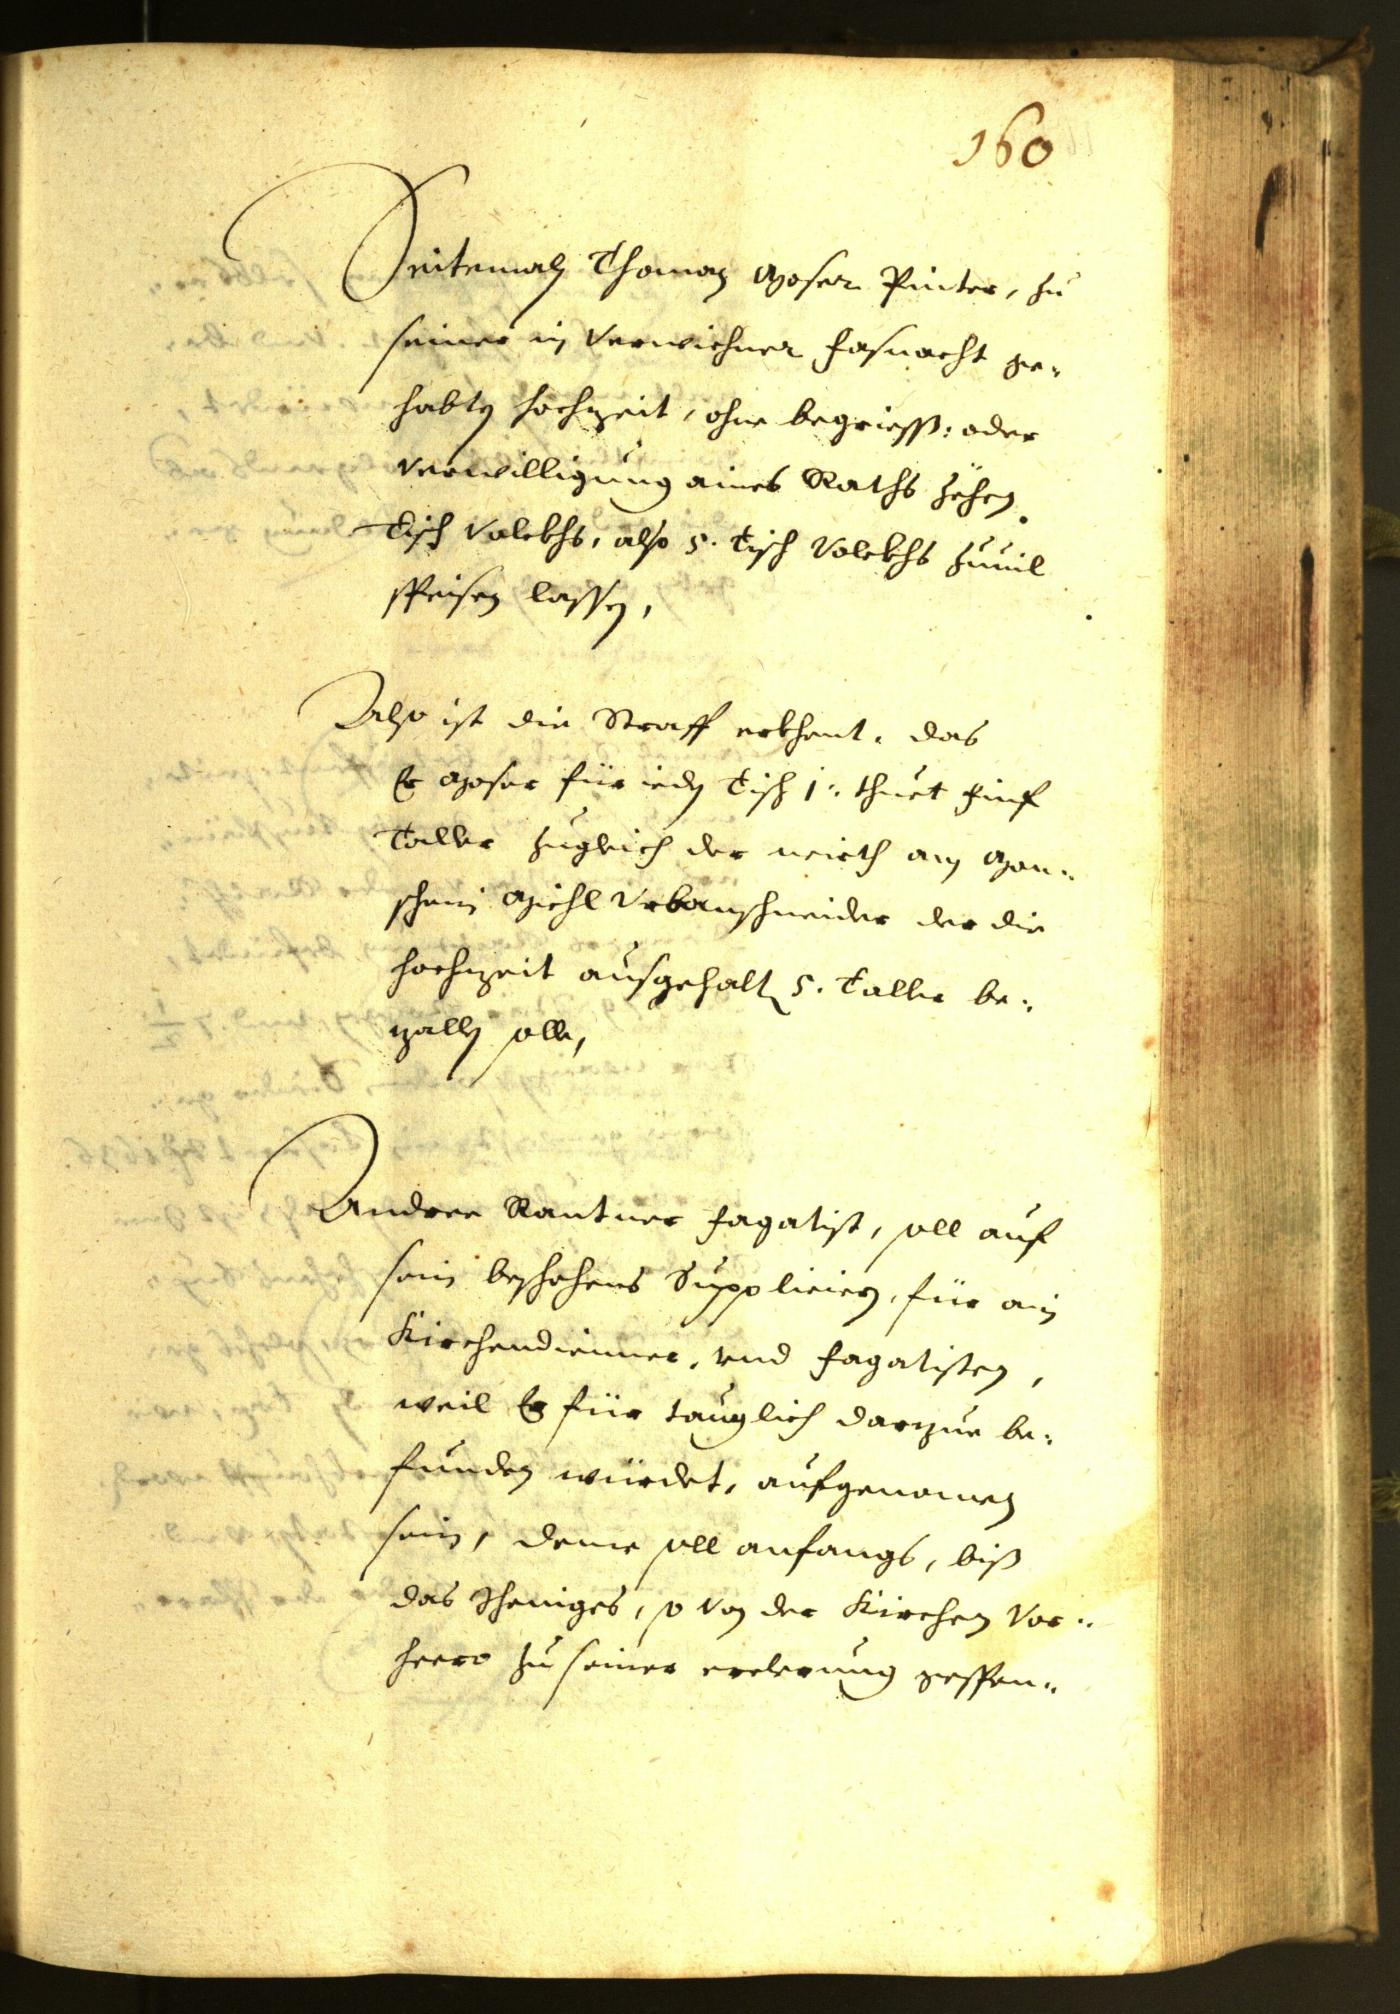 160
Seitemaln Thoman Moser Pinter, zu
seiner in Verwichner Fasnacht ge„
habten hochzeit, ohne begriessß: oder
verwilligung aines Raths zehen
Tisch Volckhs, also 5. Tisch Volckhs zuuil
speisen lassen,
Also ist die Straff erkhent, das
Er Moser für ieden Tisch 1: thuet finf
Taller zugleich der wirth am Mon„
schein Michl Urbanschneider der die
hochzeit ausgehalten 5. Taller be„
zallen solle,
Andree Rantner Fagatist, soll auf
sein beschehens Suppliciern, für ain
Kirchendienner, vnd Fagatisten,
weil Er für tauglich darzue be„
funden würdet, aufgenomen
sein, deme soll anfangs, biß
das Jheniges, so von der Kirchen Vor„
hero zu seiner erlernung